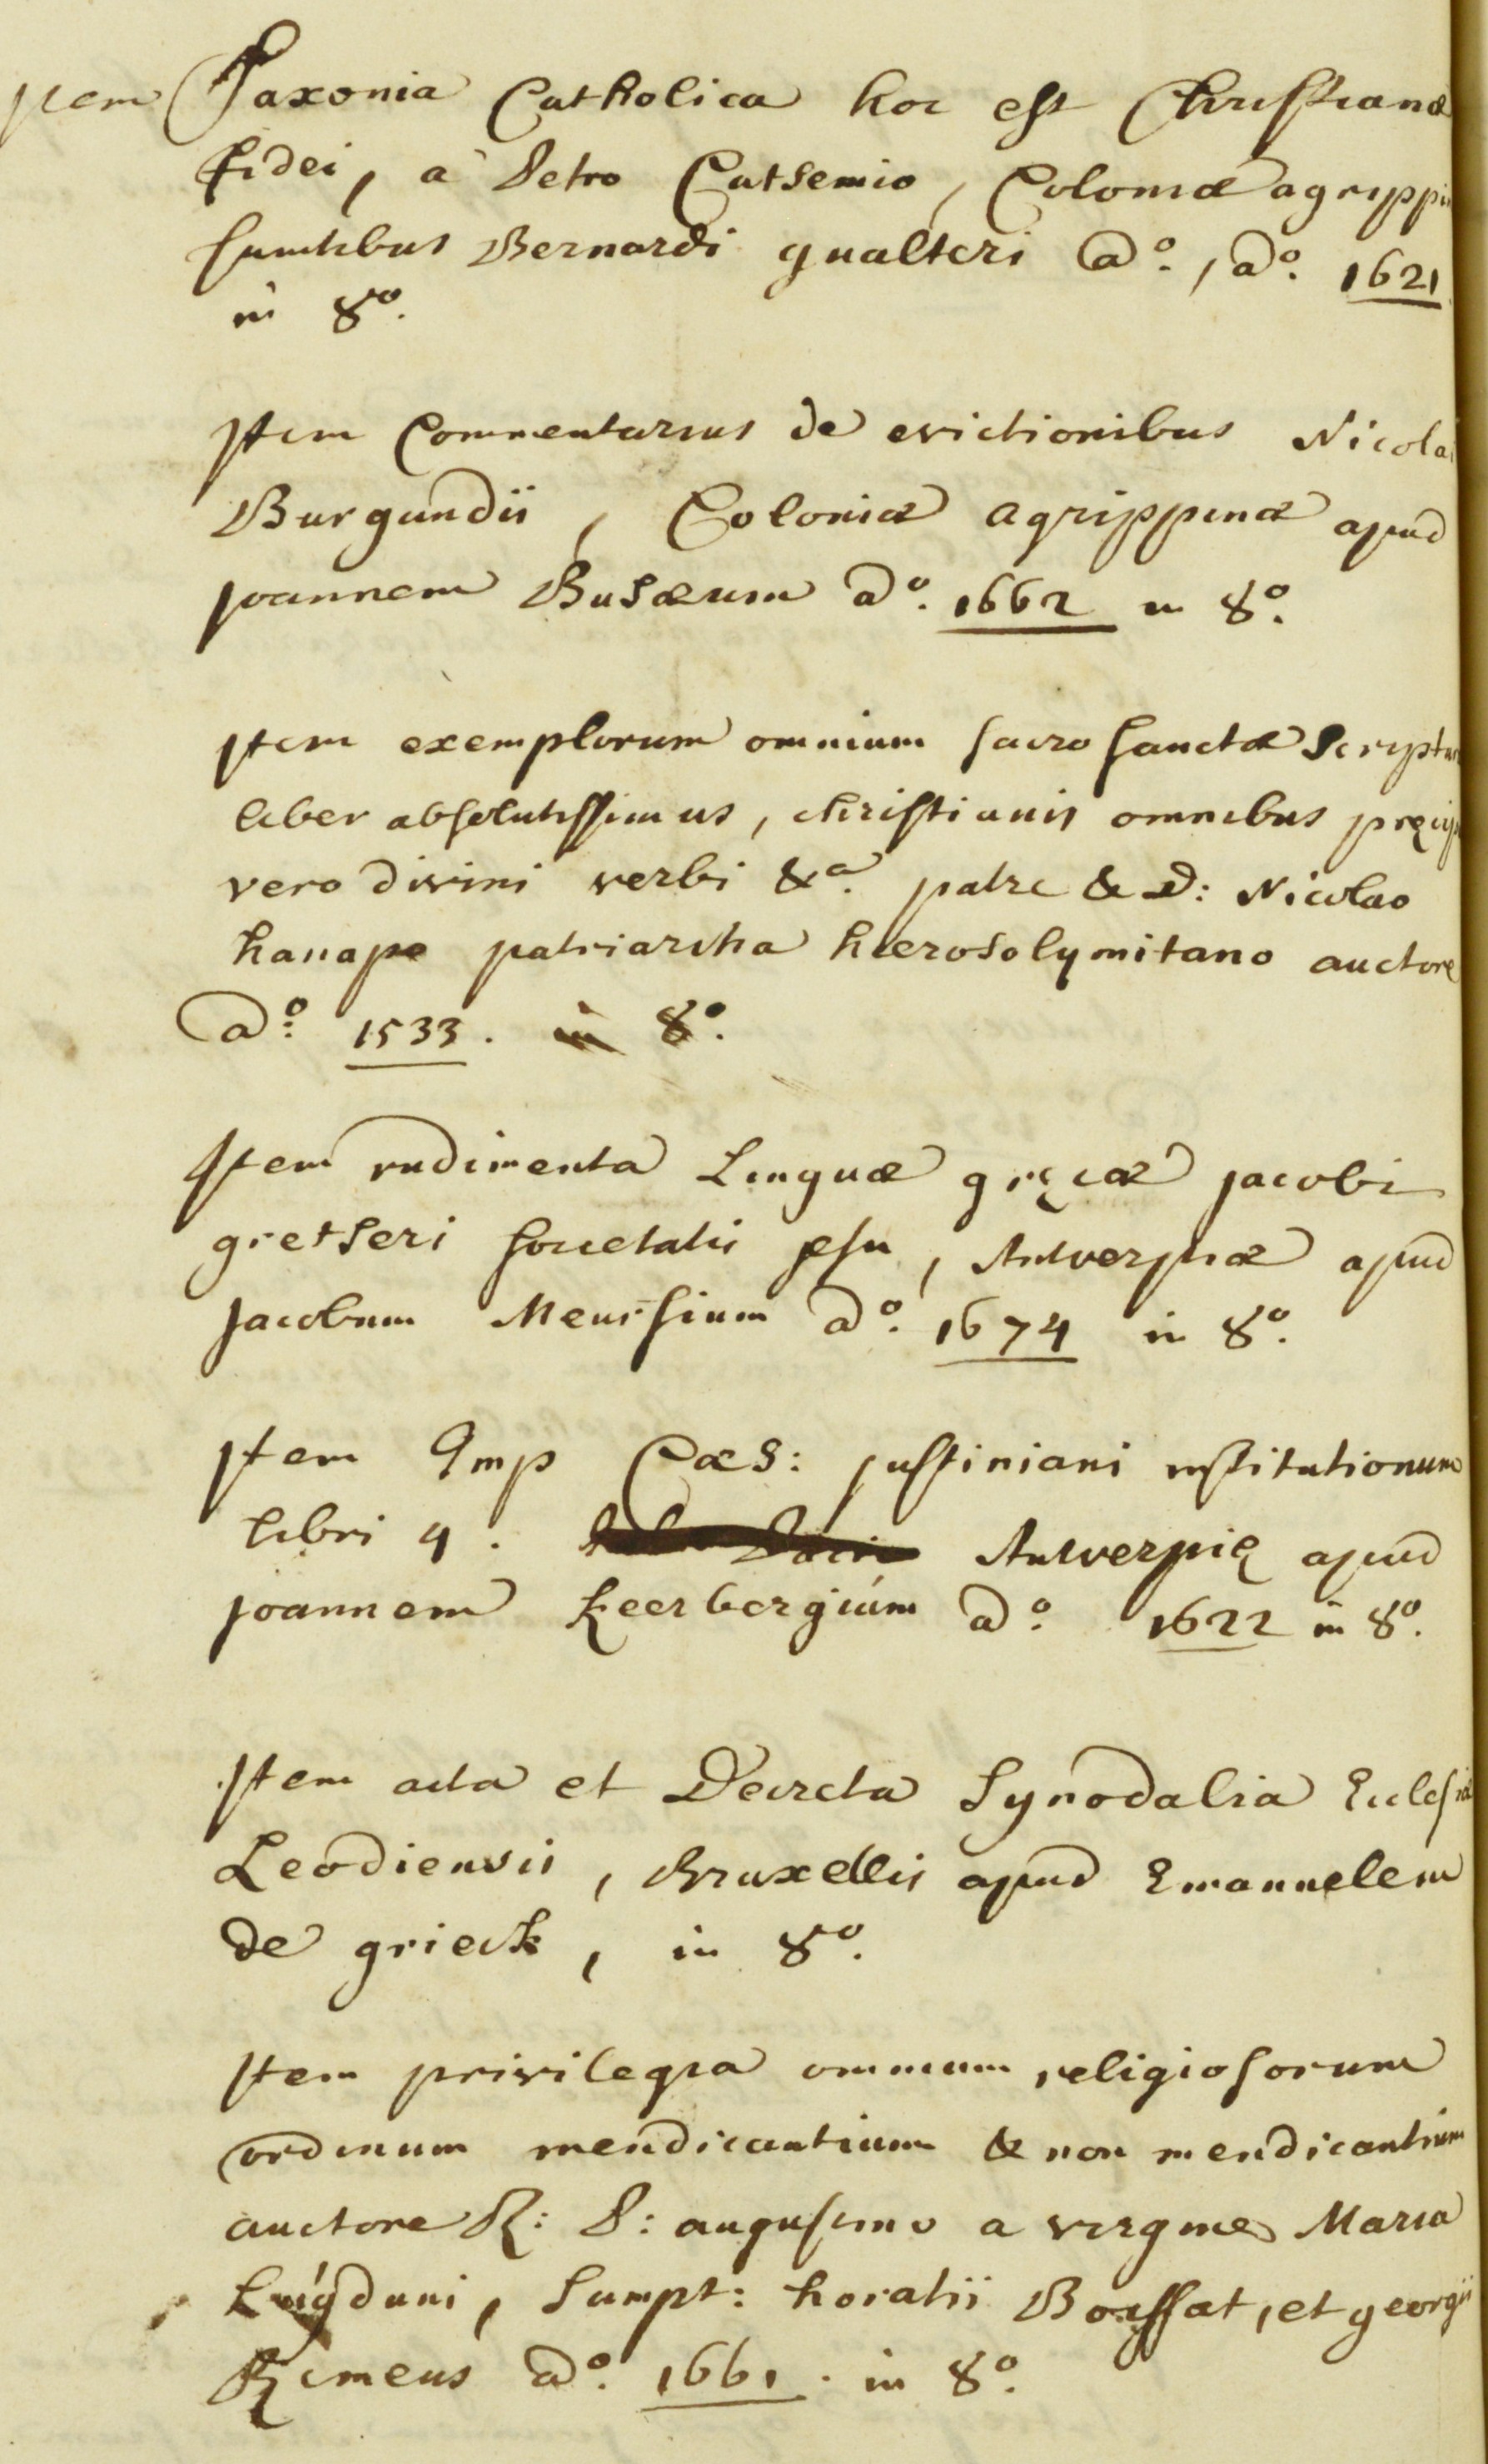 Item Saxonia Catholica hoc est Christianæ
fidei, a Petro Cutsemio, Coloniæ agrippi
sumtibus Bernardi gualteri a°., a°. 1621
in 8°.
Item Commentarius de evictionibus Nicolai
Burgundii, Coloniæ agrippinæ apud
joannem Busæum a°. 1662 in 8°.
Item exemplorum omnium sacro sanctæ Scriptur
liber absolutissimus, christianis omnibus pręcip
vero divini verbi &a. patre & D: Nicolao
hanape patriarcha hierosolymitano auctore
a°: 1533. in 8°.
Item rudimenta Linguæ gręcæ jacobi
gretseri societatis jesu, Antverpiæ apud
jacobum Meursium a°. 1674 in 8°.
Item Imp Cæs: justiniani institutionum
libri 4. Antverpię apud
joannem keerbergium a°. 1622 in 8°.
Item acta et Decreta Synodalia Ecclesiæ
Leodiensis, Bruxellis apud Emanuelem
de grieck, in 8°.
Item privilegia omnium religiosorum
ordinum mendicantium & non mendicantium
auctore R: P: augustino a virgine Maria
Lugduni, Sumpt: horatii Boissat, et georgii
Remeus a°. 1661. in 8°.